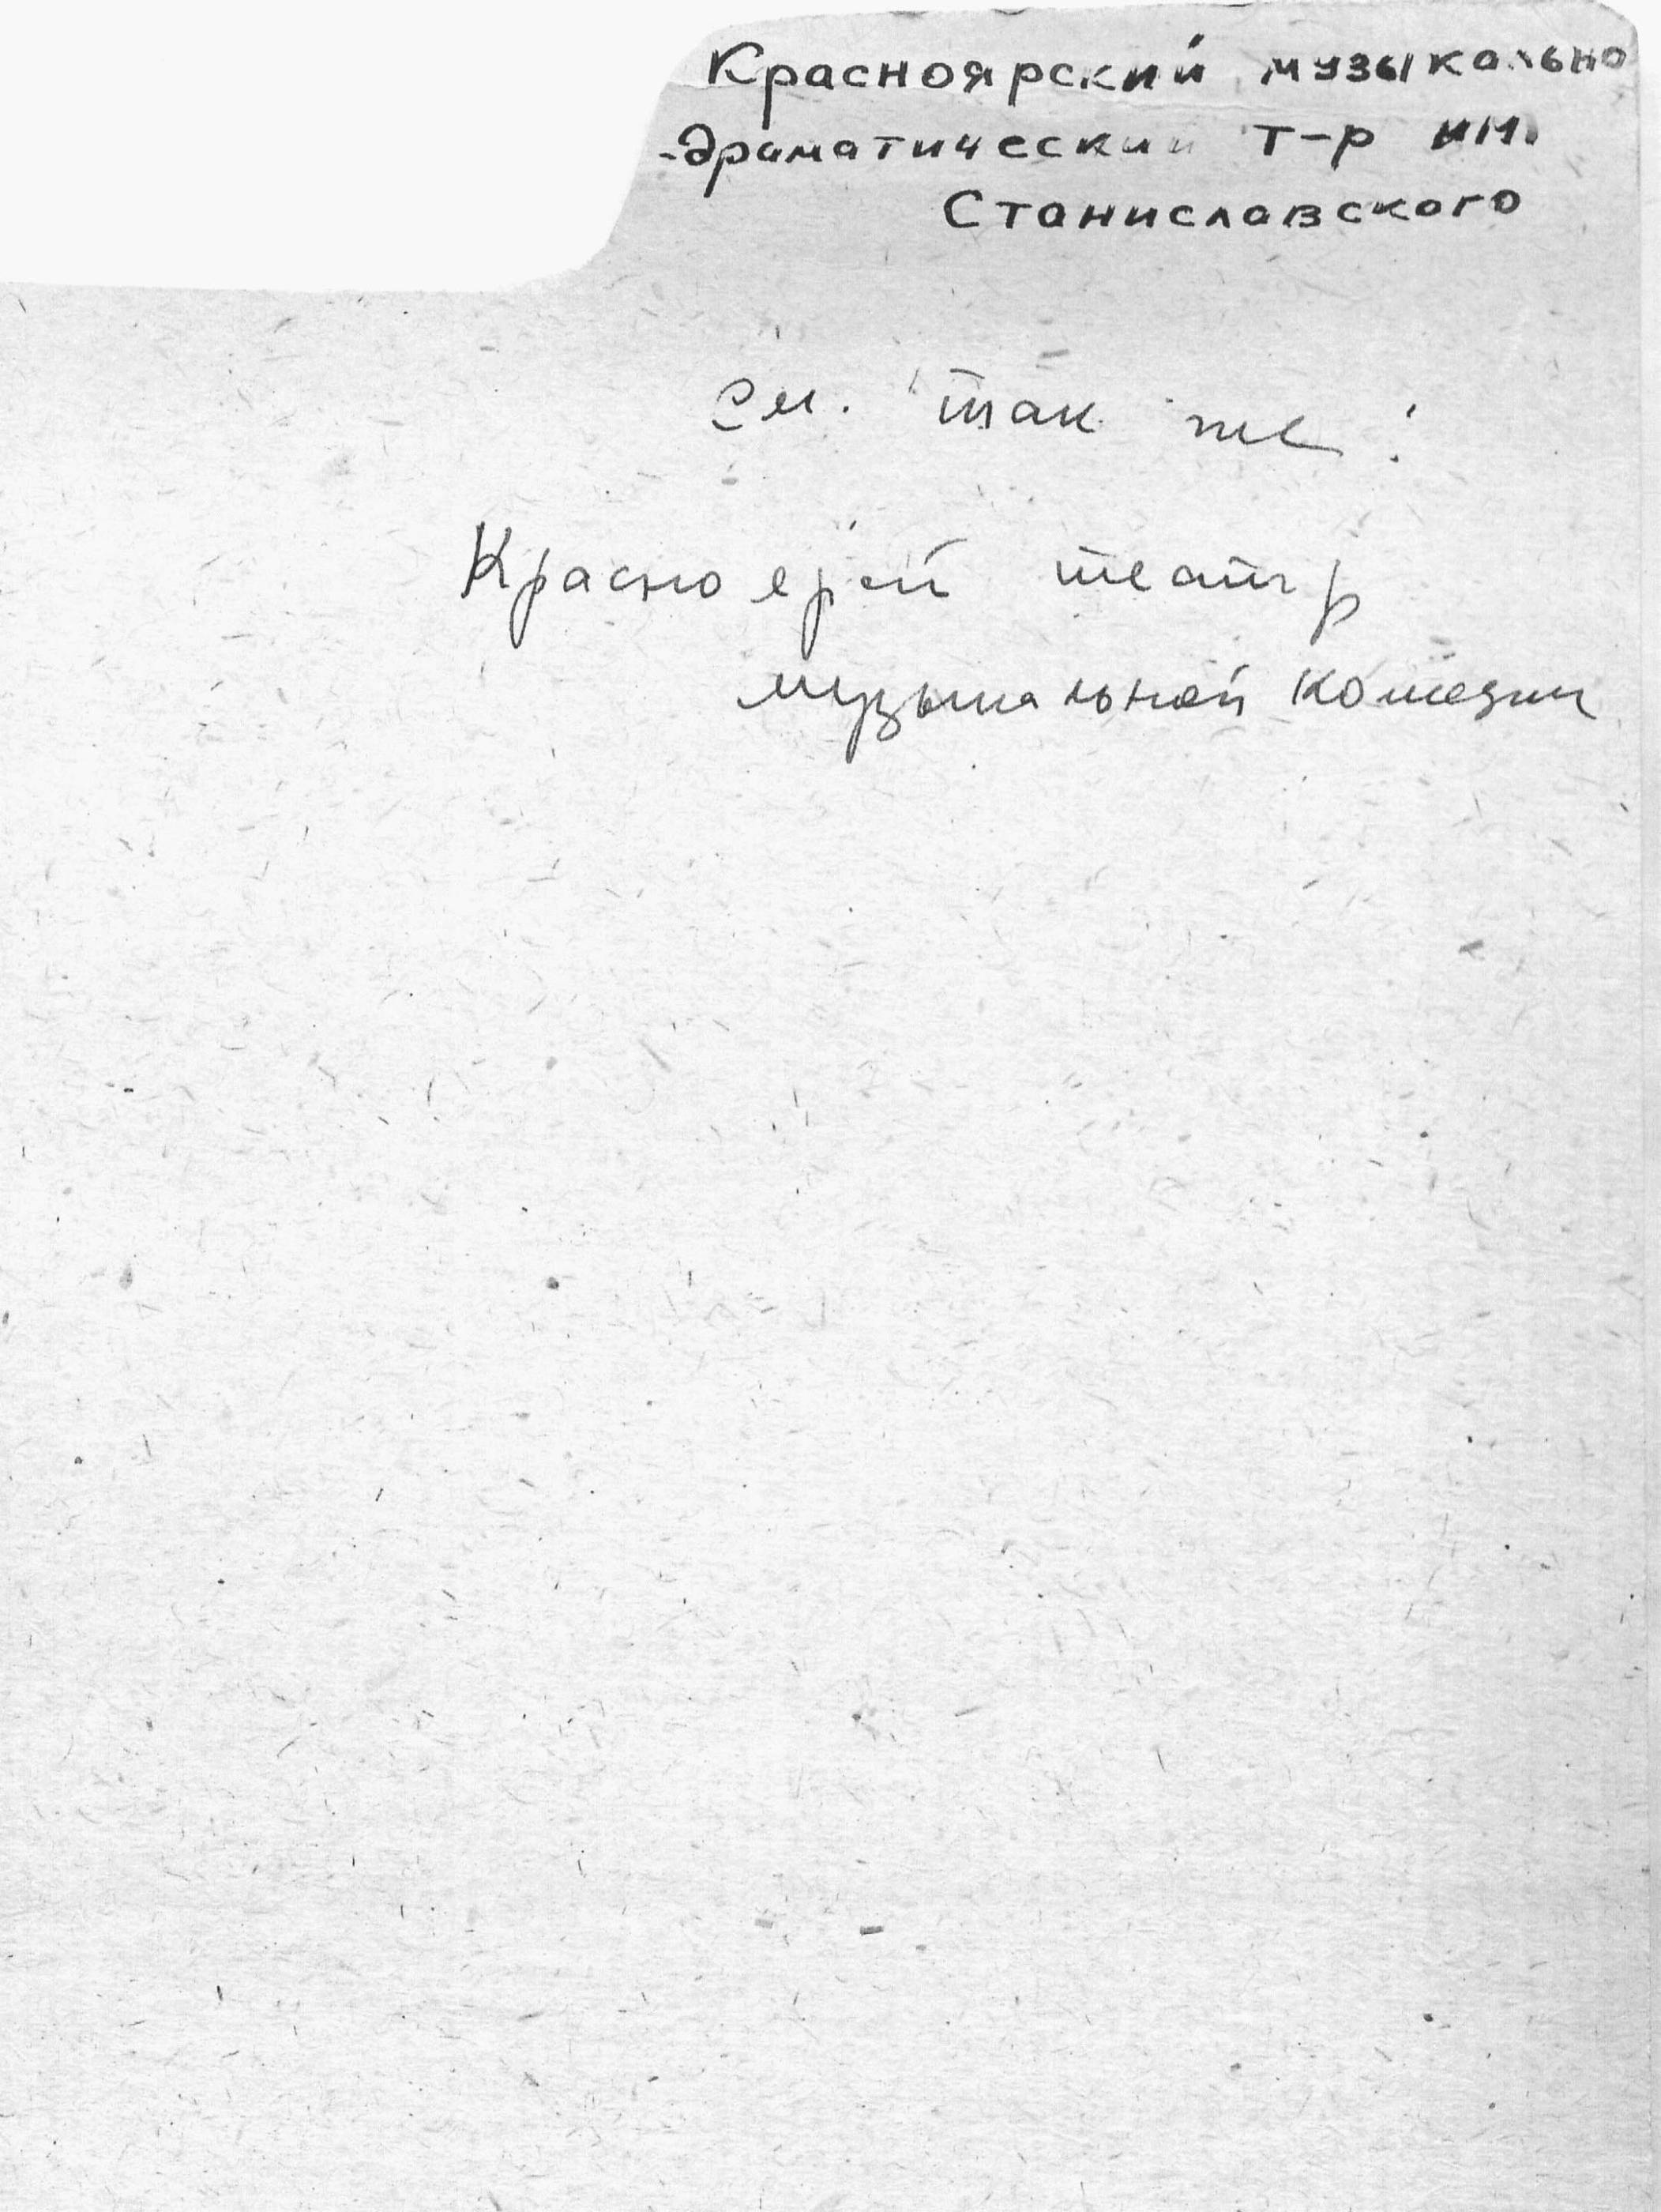 Красноярский музыкально
-драматический т-р им.
Станиславского
см. так же:
Краснояр-ий театр
музыкальной комедии